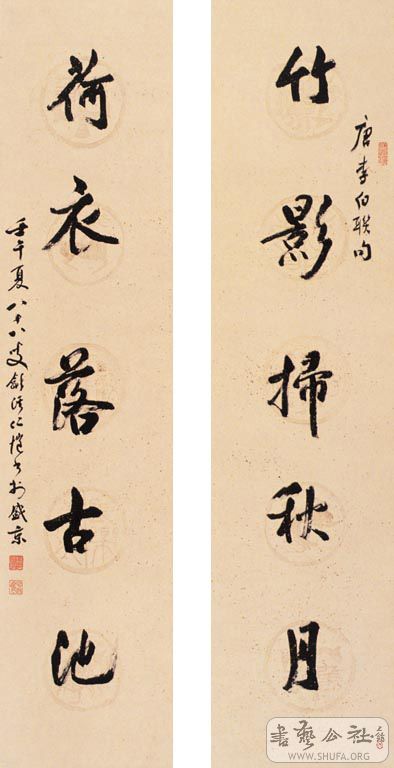 唐李伯联句
竹影掃秋月
荷衣落古池
壬午夏八十八叟龢溪仁愷书於盛京
書藝公社
WWW.SHUFA.ORG